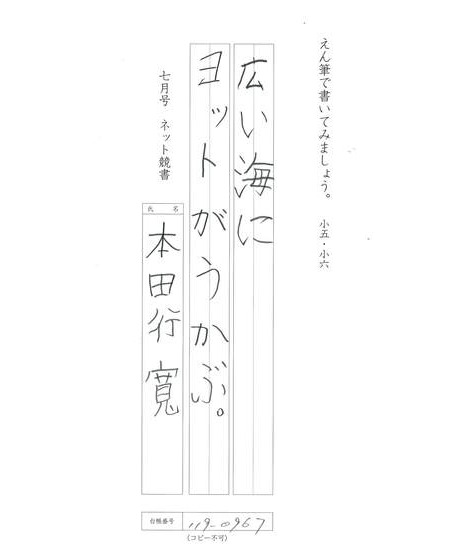 えん筆で書いてみましょう。 小五・小六
広い海に
ヨットがうかぶ。
七月号 ネット競書
氏 名
本田行寛
台帳番号 119-0967
(コピー不可)